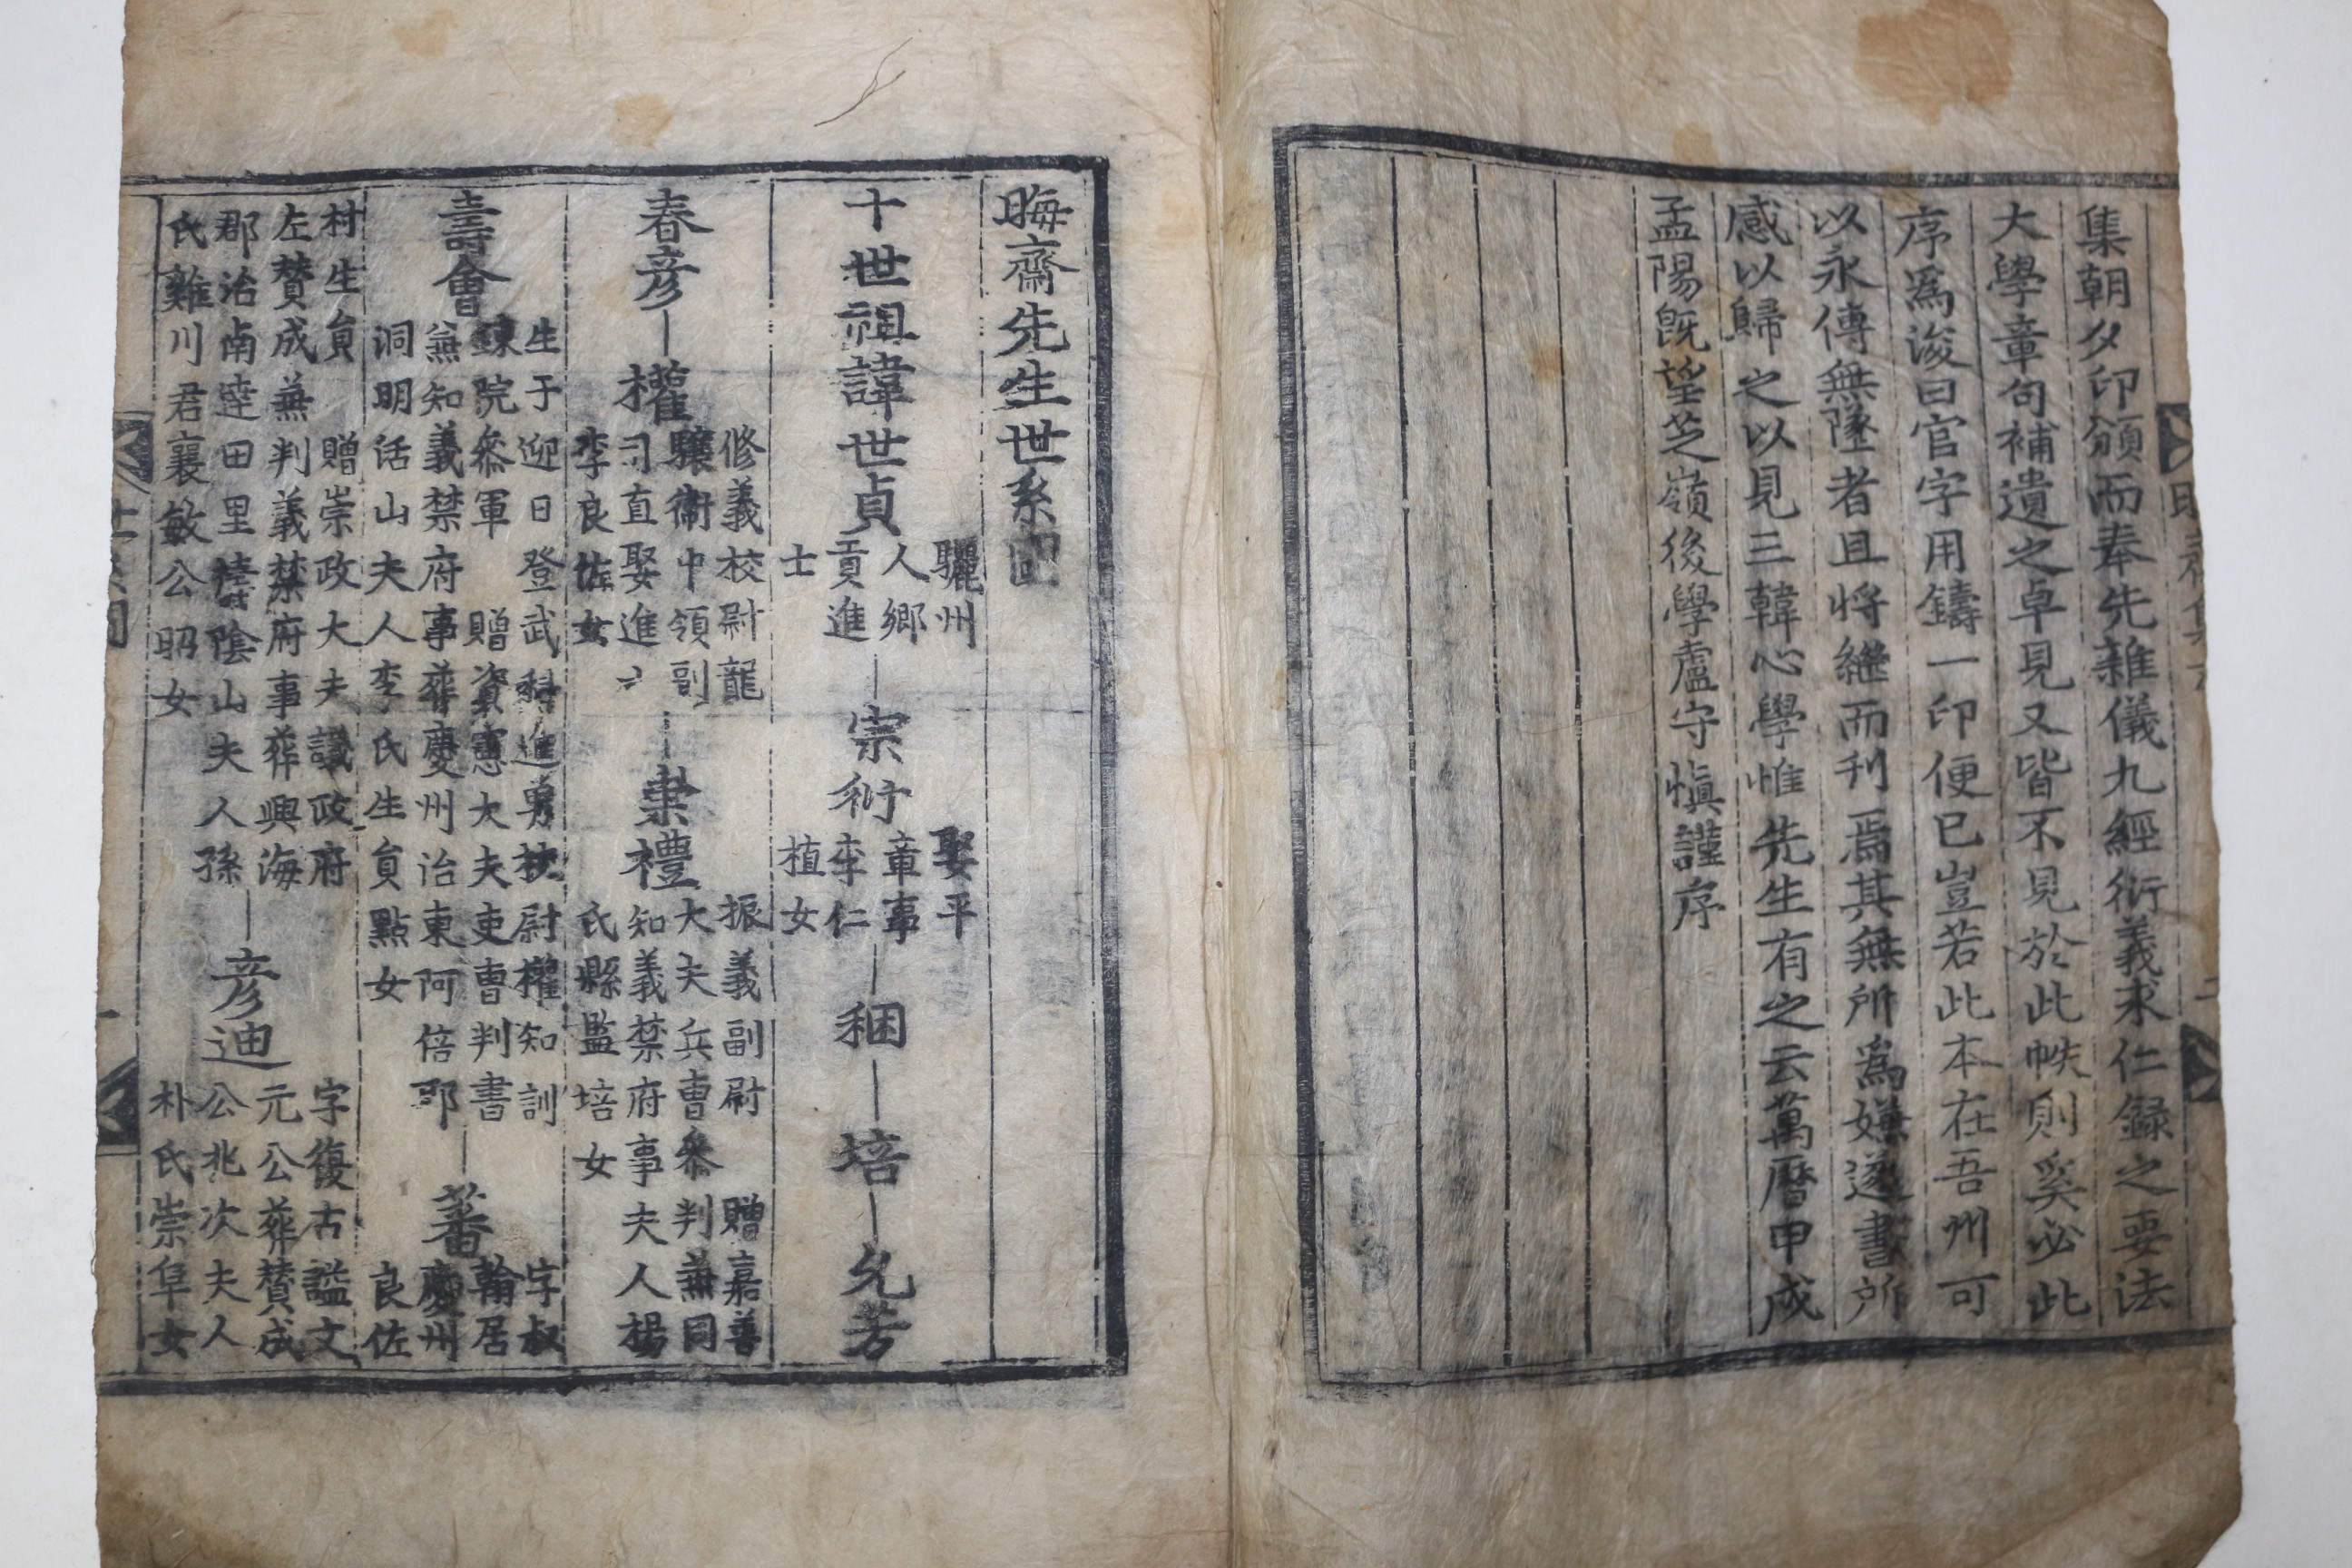 集朝夕印頒而奉先雜儀九經衍義求仁録之要法
大學章句補遺之卓見又皆不見於此帙則奚必此
序爲浚曰官字用鑄一印便已豈若此本在吾州可
以永傳無墜者且將繼而刋焉其無所爲嫌遂書所
感以歸之以見三韓心學惟先生有之云萬曆甲戌
孟陽旣望芝嶺後學盧守愼謹序
晦齋先生世系圖
十世祖諱世貞
驪州
人鄉
貢進
士
宗衍
娶平
章事
李仁
植女
稇
培
允芳
春彦
權
修義校尉龍
驤衛中領副
司直娶進士
李良佐女
崇禮
振義副尉 贈嘉善
大夫兵曹叅判兼同
知義禁府事夫人楊
氏縣監培女
壽會
生于迎日登武科進勇校尉權知訓
錬院叅軍 贈資憲大夫吏曹判書
兼知義禁府事葬慶州治東阿倍耶
洞明活山夫人李氏生員點女
蕃
字叔
翰居
慶州
良佐
村生員 贈崇政大夫議政府
左賛成兼判義禁府事葬興海
郡治南達田里禱陰山夫人孫
氏雞川君襄敏公昭女
彦迪
字復古謚文
元公葬賛成
公兆次夫人
朴氏崇阜女